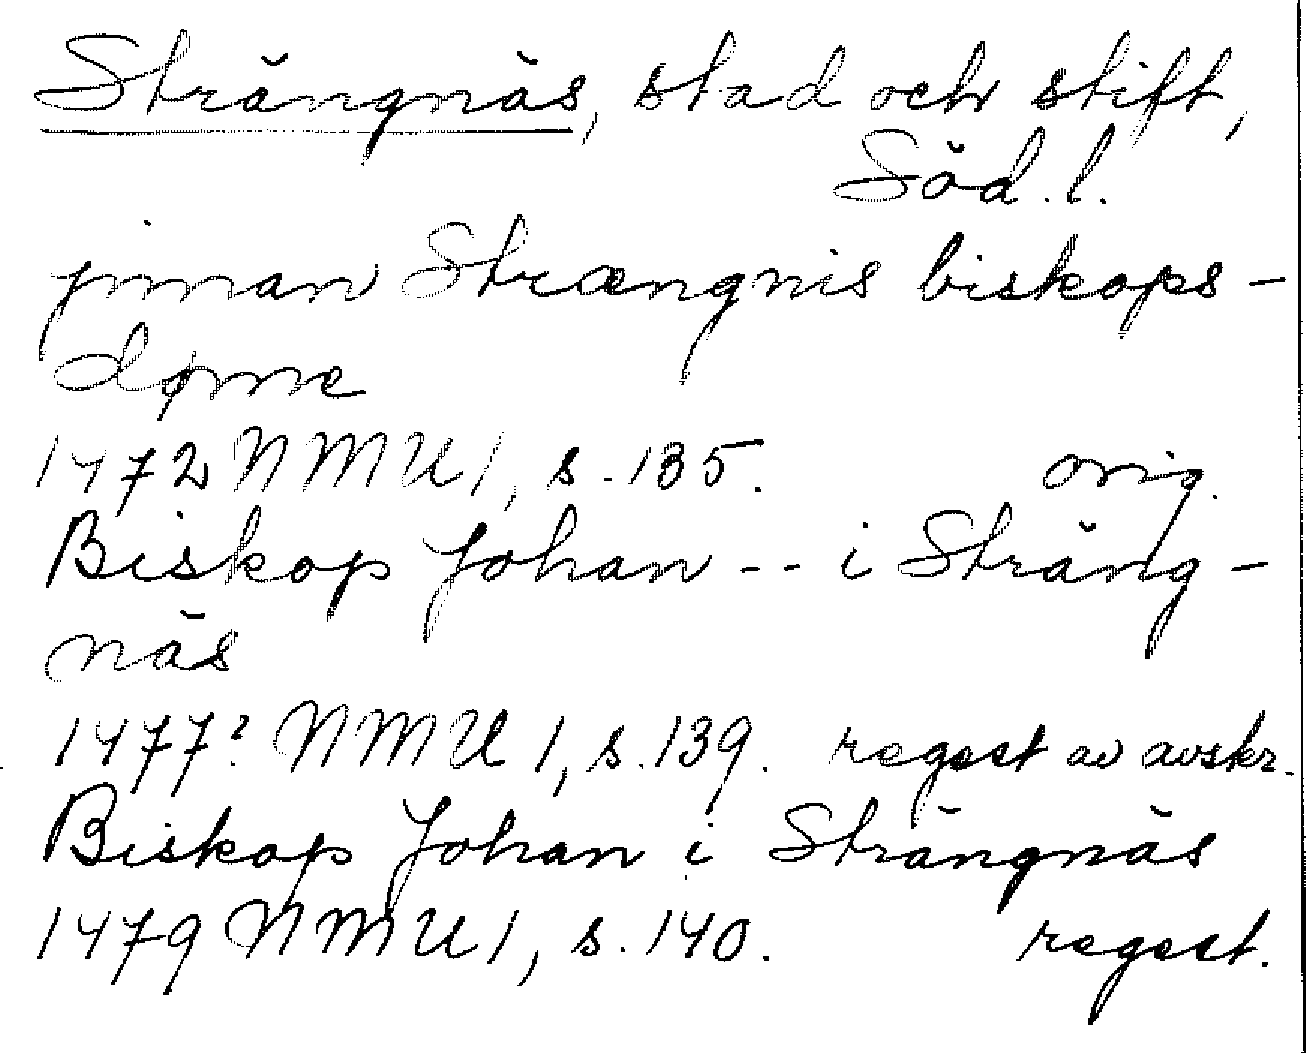 Strängnäs, stad och stift,
Söd.l.
jnnan Strængnis biskops-
døme
1472 NMU 1, s. 135. orig.
Biskop Johan -- i Sträng-
näs
1477? NMU 1, s. 139. regest av avskr.
Biskop Johan i Strängnäs
1479 NMU 1, s. 140. regest.